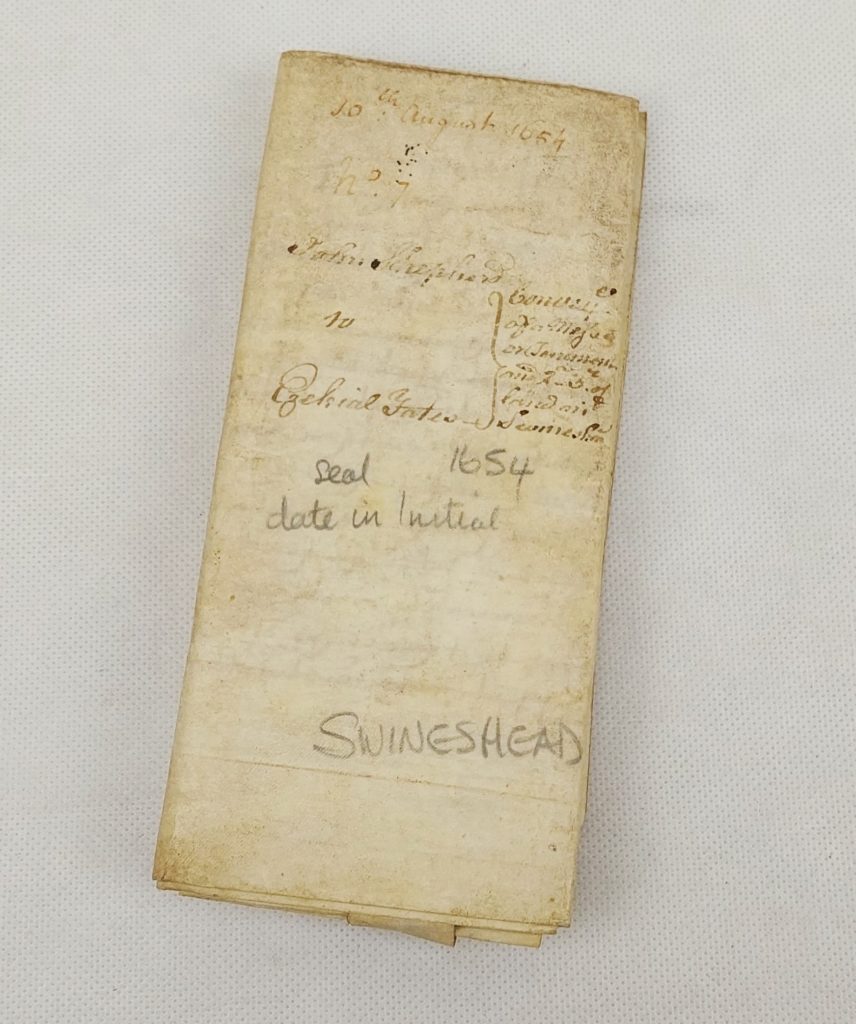 10th August 1654
No. 7
John Shepherd
to
Ezekial Yates
Convey.ce
of a Messe
or Tenement
and
land in
Swineshd
seal 1654
date in Initial
SWINESHEAD